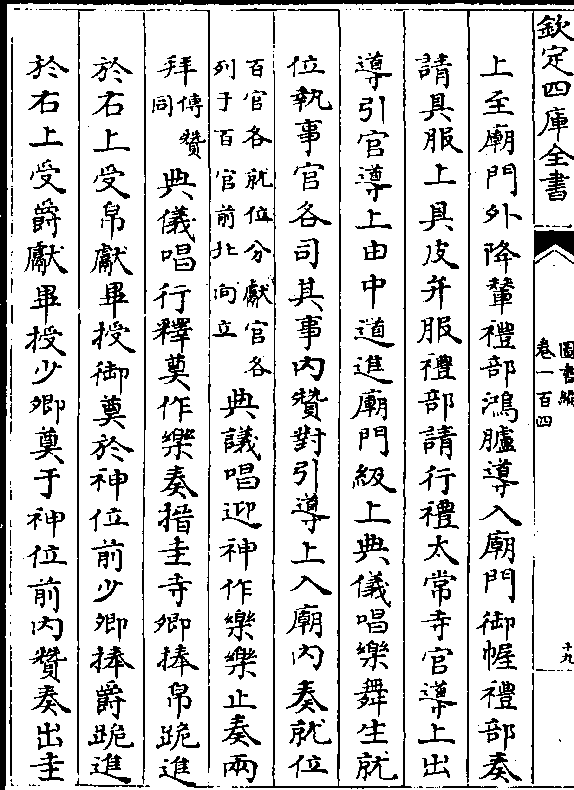 欽定四庫全書
圖書編
卷一百四
十九
上至廟門外降輦禮部鴻臚導入廟門御幄禮部奏
請具服上具皮弁服禮部請行禮太常寺官導上出
導引官導上由中道進廟門級上典儀唱樂舞生就
位執事官各司其事內贊對引導上入廟內奏就位
百官各就位分獻官各
列于百官前北向立
典議唱迎神作樂樂止奏兩
拜
傳贊
同
典儀唱行釋奠作樂奏搢圭寺卿捧帛跪進
於右上受帛獻畢授御奠於神位前少卿捧爵跪進
於右上受爵獻畢授少卿奠于神位前內贊奏出圭